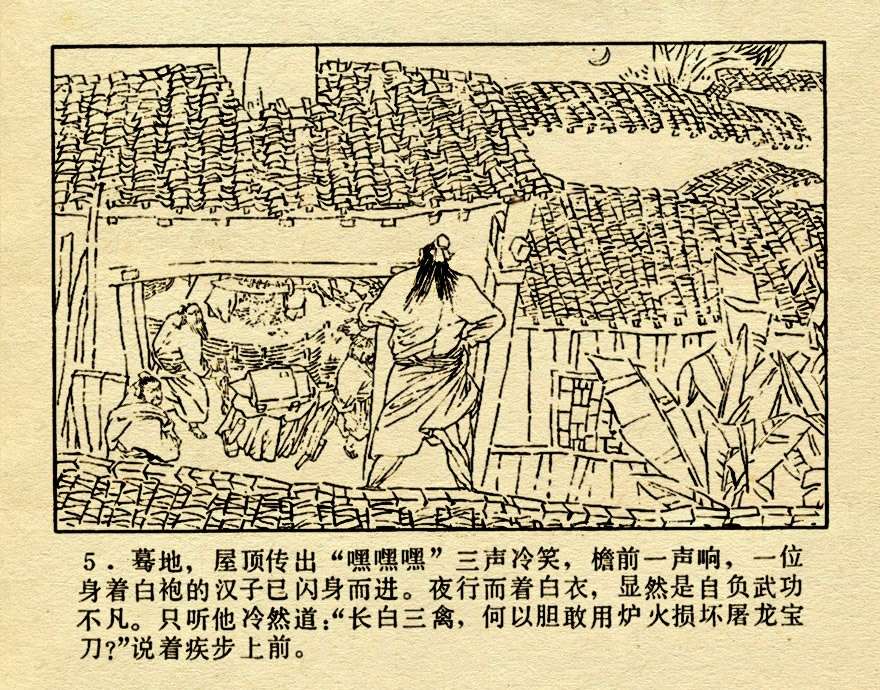 5．蓦地，屋顶传出“嘿嘿嘿”三声冷笑，檐前一声响，一位
身着白袍的汉子已闪身而进。夜行而着白衣，显然是自负武功
不凡。只听他冷然道：“长白三禽，何以胆敢用炉火损坏屠龙宝
刀？”说着疾步上前。